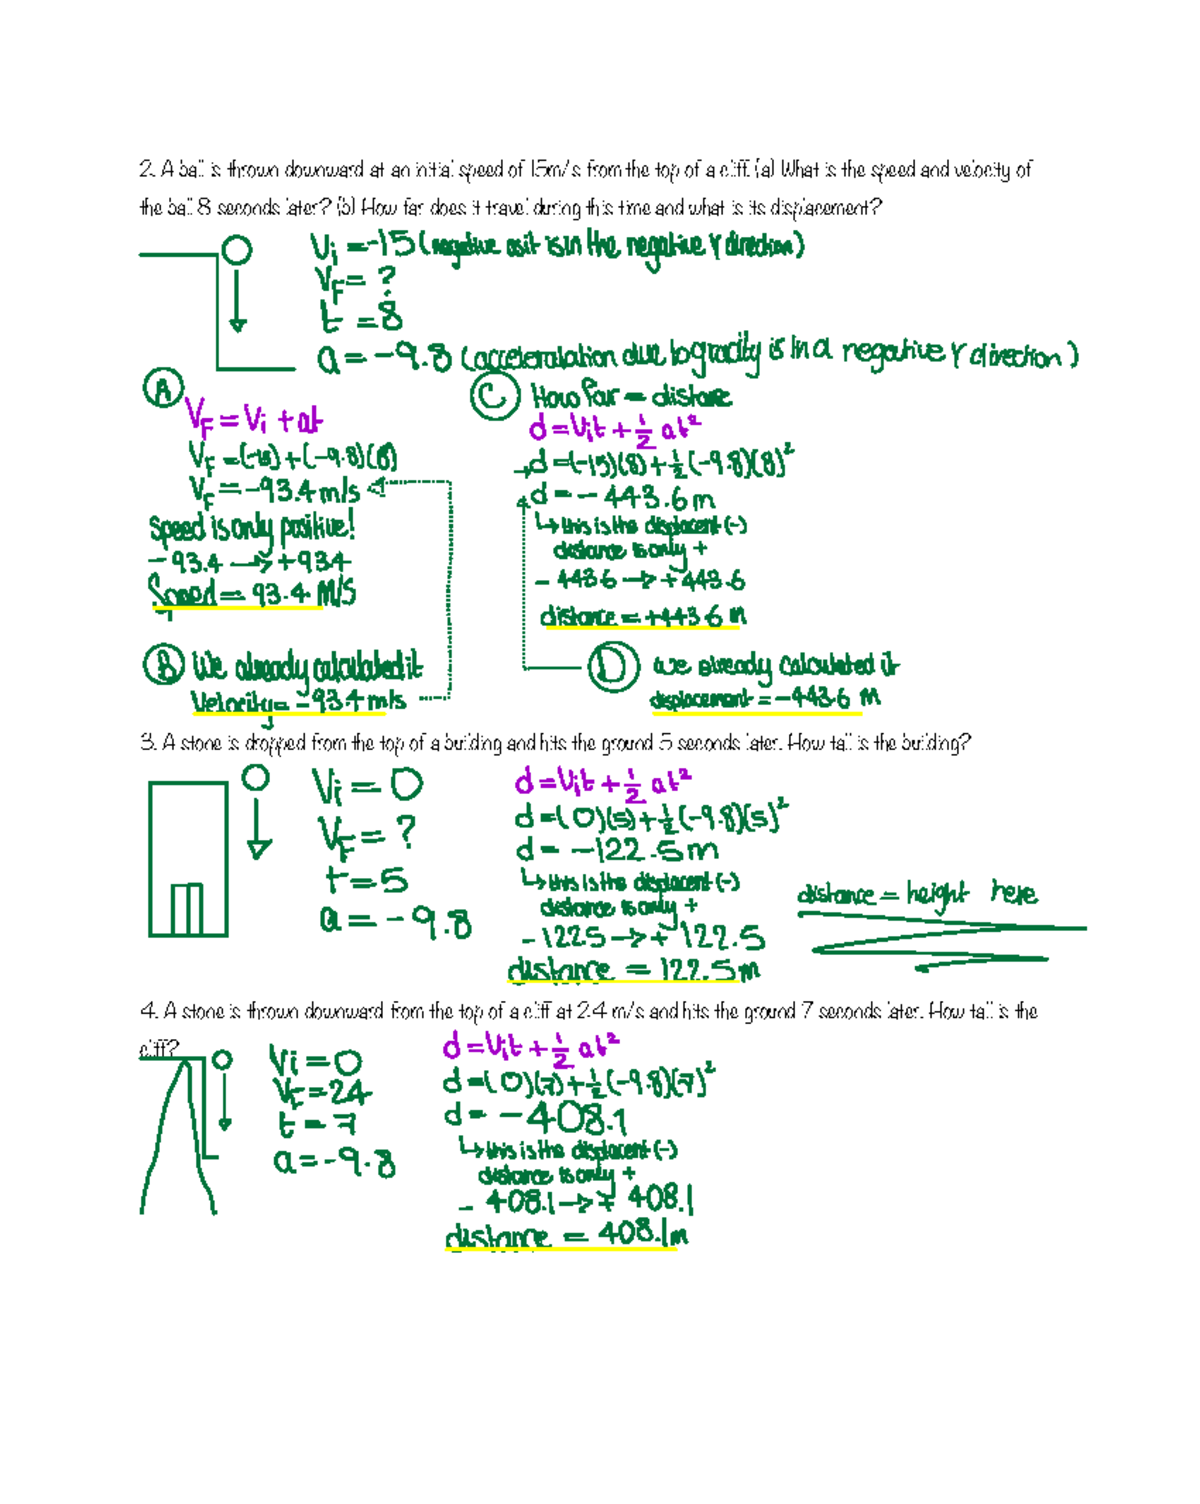 2. A ball is thrown downward at an initial speed of 15m/s from the top of a cliff. (a) What is the speed and velocity of
the ball 8 seconds later? (b) How far does it travel during this time and what is its displacement?
Vi = -15 (negative as it is in the negative Y direction)
VF = ?
t = 8
a = -9.8 (acceleralation due to gracity is in a negative Y direction)
A
VF = Vi + at
VF = (-15) + (-9.8)(8)
VF = -93.4 m/s
Speed is only positive!
-93.4 → +93.4
Speed = 93.4 M/S
B We already calculated it
Velocity = -93.4 m/s
C How far = distance
d = Vit + 1/2 at²
→d = (-15)(8) + 1/2 (-9.8)(8)²
d = -443.6 m
↳ this is the displacent (-)
distance is only +
-443.6 → +443.6
distance = +443.6 m
D we already calculated it
displacement = -443.6 M
3. A stone is dropped from the top of a building and hits the ground 5 seconds later. How tall is the building?
Vi = 0
VF = ?
t = 5
a = -9.8
d = Vit + 1/2 at²
d = (0)(5) + 1/2 (-9.8)(5)²
d = -122.5 m
↳ this is the displacent (-)
distance is only +
-122.5 → + 122.5
distance = 122.5 m
distance = height here
4. A stone is thrown downward from the top of a cliff at 24 m/s and hits the ground 7 seconds later. How tall is the
cliff?
Vi = 0
VF = 24
t = 7
a = -9.8
d = Vit + 1/2 at²
d = (0)(7) + 1/2 (-9.8)(7)²
d = -408.1
↳ this is the displacent (-)
distance is only +
- 408.1 → + 408.1
distance = 408.1m